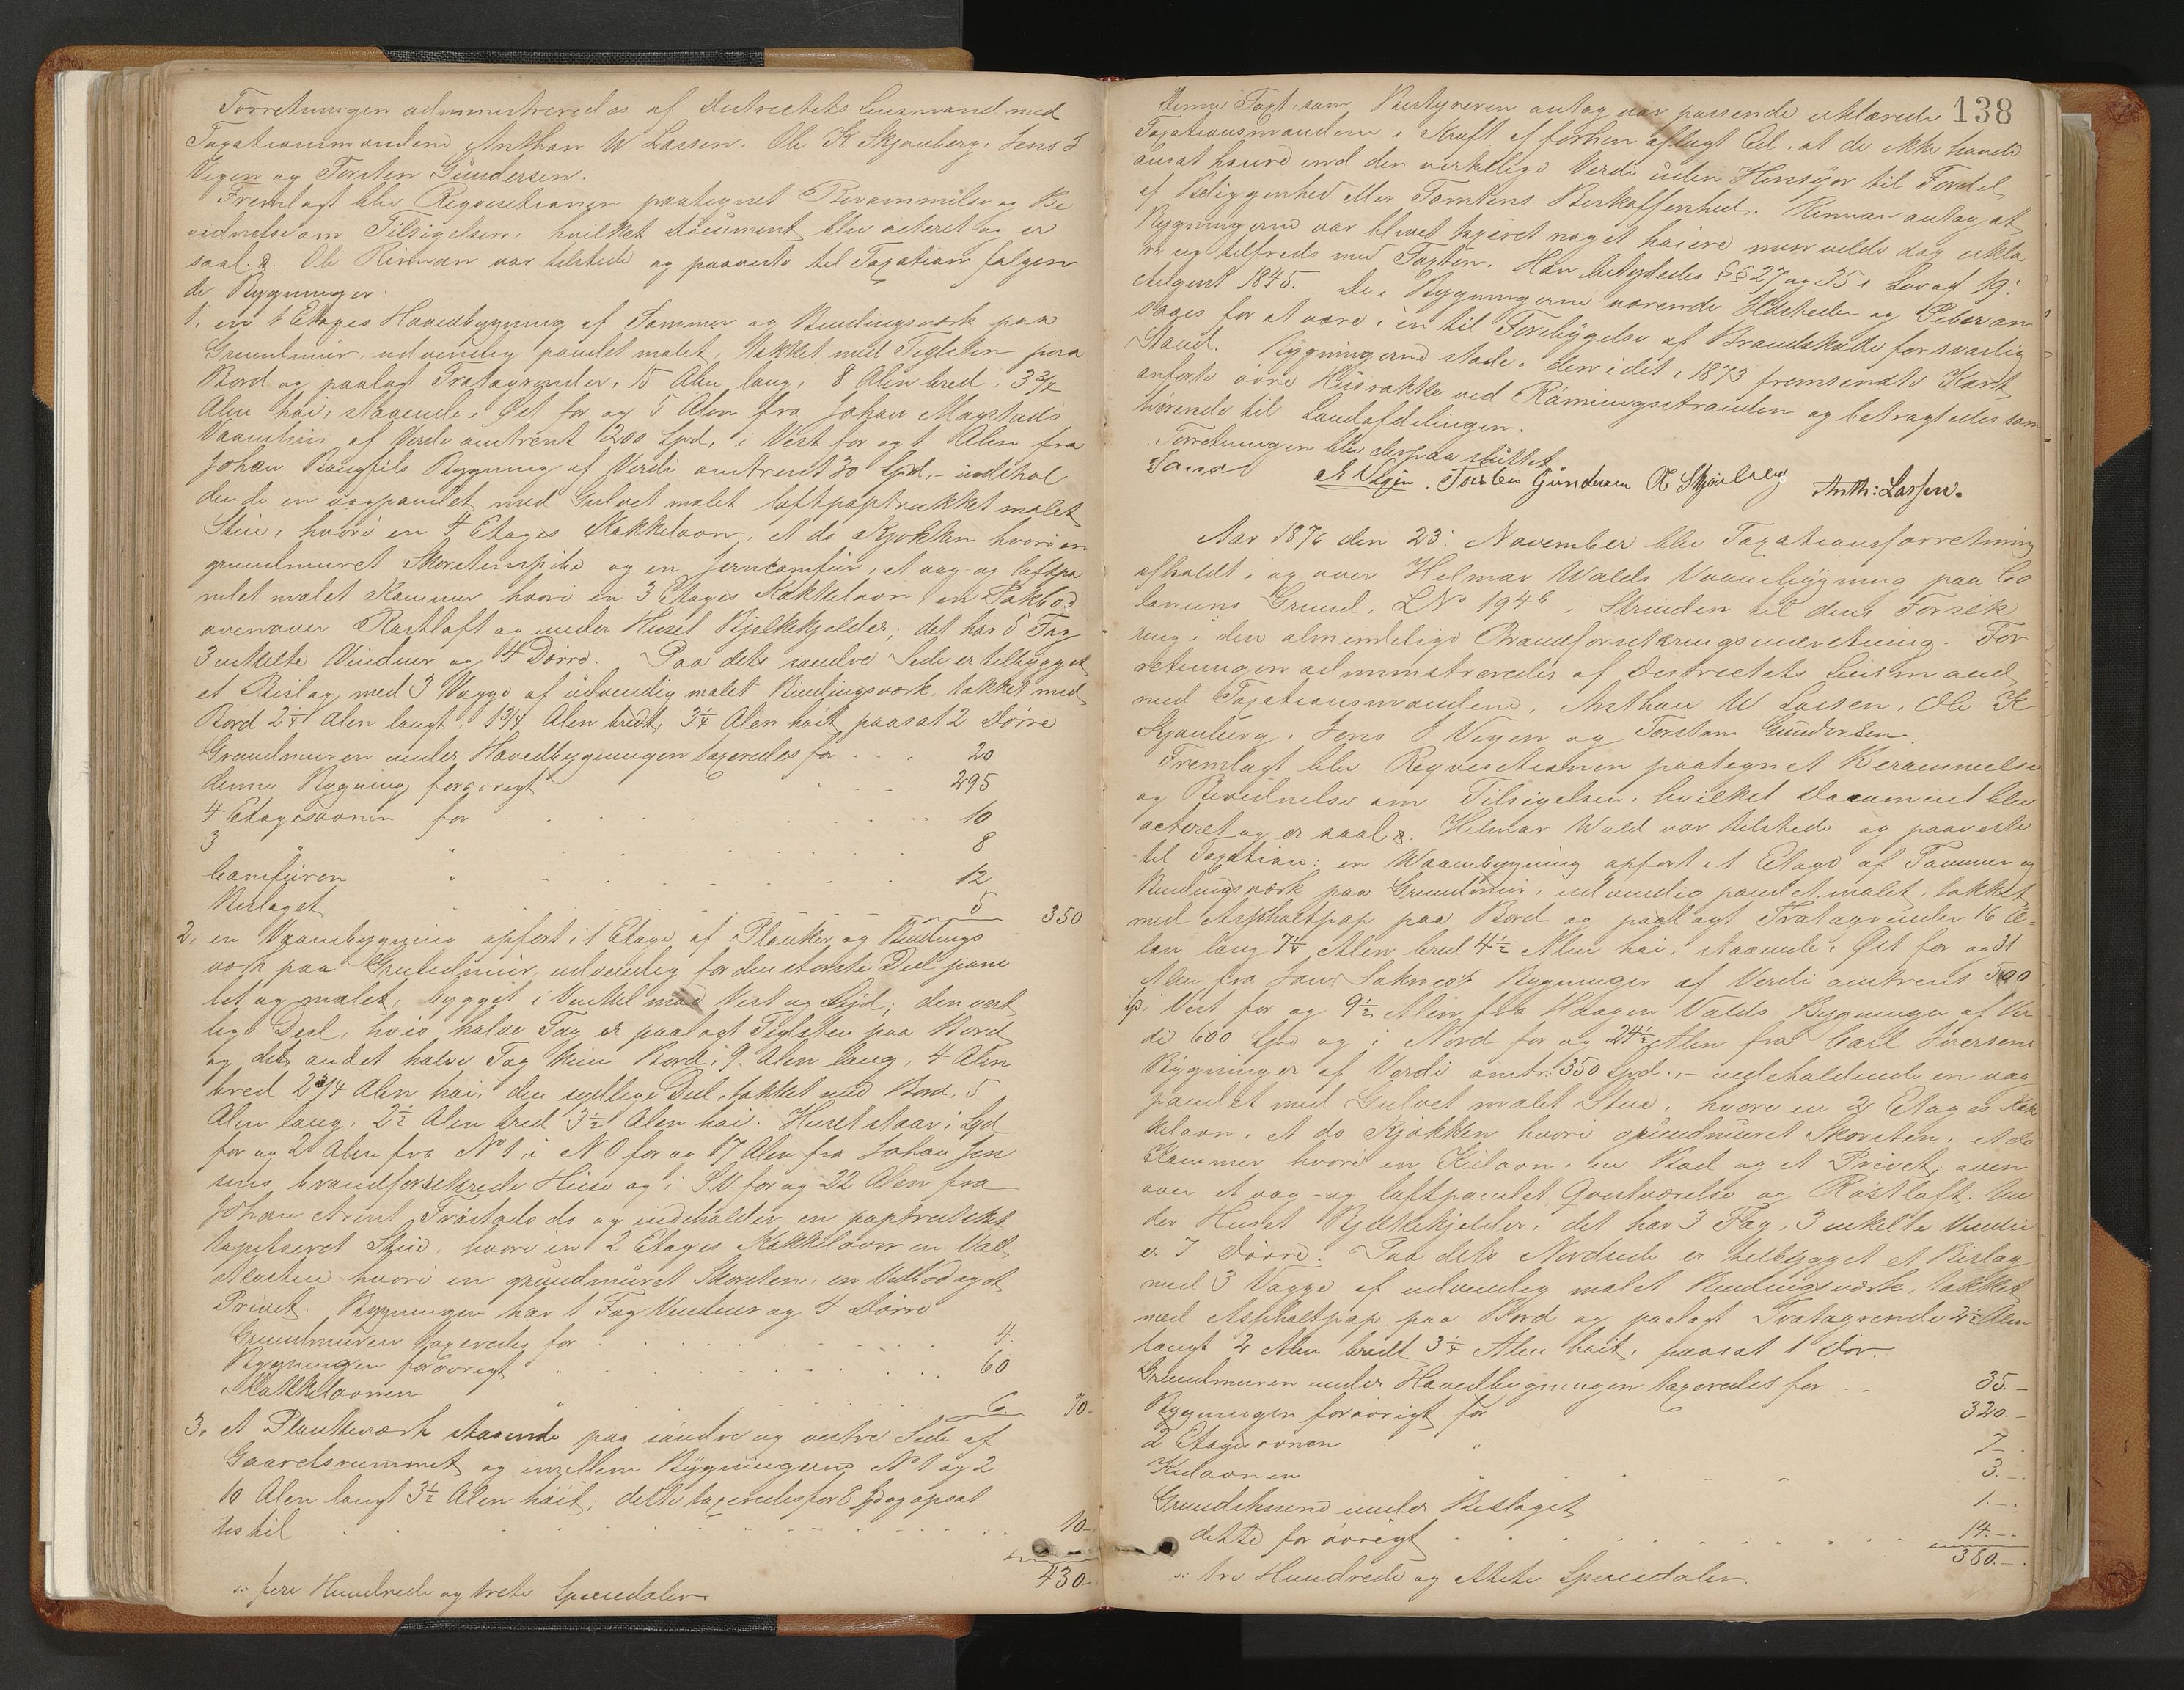 Forretningen administreredes af Districtets Lensmand med
Taxationsmændene Anthon W Lassen. Ole K Skjønberg. Jens J
Vegen og Torsten Gundersen.
Fremlagt blev Reqvisitionen paategnet Berammelse og Be
vidnelse om Tilsigelsen, hvilket Document blev acteret og er
saal. Ole Rinnan var tilstede og paaviste til Taxation følgen
de Bygninger.
1. en 1 Etages Hovedbygning af Tømmer og Bindingsværk paa
Grundmur, udvendig panelet malet, tækket med Teglsten paa
Bord og paalagt Trætagrender, 15 Alen lang, 8 Alen bred, 3 3/4
Alen høi, staaende i Øst for og 5 Alen fra Johan Magstads
Vaanhus af Verdi omtrent 1200 Spd, i Vest for og 1 Alen fra
Johan Bangfils Bygning af Verdi omtrent 30 Spd, - indehol
dende en vægpanelet med Gulvet malet loftpaptrukket malet
Stue, hvori en 4 Etages Kakkelovn, et do Kjøkken hvori en
grundmuret Skorstenspibe og en Jerncomfur, et væg- og loftpa
nelet malet Kammer hvori en 3 Etages Kakkelovn, en Pakbod
ovenover Røstloft og under Huset Bjelkekjelder; det har 5 Fag
3 enkelte Vinduer og 4 Dørre. Paa dets søndre Side er tilbygget
et Bislag med 3 Vægge af udvendig malet Bindingsværk, tækket med
Bord 2 1/4 Alen langt, 1 3/4 Alen bredt, 3 1/4 Alen høit paasat 2 Dørre
Grundmuren under Hovedbygningen taxeredes for . . . 20
denne Bygning forøvrigt . . . 295
4 Etagesovnen for . . . 10
3 " . . . 8
Comfuren " . . . 12
Bislaget . . . 5 350
2. en Vaanbygning opført i 1 Etage af Planker og Bindings
værk paa Grundmur, udvendig for den største Deel pane
let og malet, bygget i Vinkel mod Vest og Syd; den vest
lige Deel, hvis halve Tag er paalagt Teglsten paa Bord
og dets andet halve Tag kun Bord, 9 Alen lang, 4 Alen
bred 2 3/4 Alen høi, den sydlige Deel, tækket med Bord, 5
Alen lang, 2 1/2 Alen bred 3 1/2 Alen høi. Huset staar i Syd
for og 2 Alen fra No 1, i NO for og 17 Alen fra Johan Jen
sens brandforsikrede Huse og i SV for og 22 Alen fra
Johan Arent Trøstads do og indeholder en paptrukket
tapetseret Stue, hvori en 2 Etages Kakkelovn en Val
hvori en grundmuret Skorsten, en Vedbod og et
Privet. Bygningen har 1 Fag Vinduer og 4 Dørre
Grundmuren taxeredes for . . . 4.
Bygningen forøvrigt " . . . 60
Kakkelovnen " . . . 6 70-
3. et Plankeværk staaende paa søndre og vestre Side af
Gaardsrummet og imellem Bygningerne No 1 og 2
10 Alen langt 3 1/2 Alen høit, dette taxeredes for 8 Spd og opsat
tes til . . . 10-
430-
s: fire Hundrede og treti Speciedaler.
138
Denne Taxt, som Bestyreren antog var passende erklærede
Taxationsmændene i Kraft af forhen aflagt Eed, at de ikke havde
ansat høiere end den virkelige Verdi uden Hensyn til Fordel
af Beliggenhed eller Tomtens Beskaffenhed. Rinnan antog at
Bygningerne var blevet taxeret noget høiere men vilde dog erklæ
re sig tilfreds med Taxten. Han betydedes §§ 27 og 35 i Lov af 19:
August 1845. De i Bygningerne værende Ildsteder og Piber an
saaes for at være i en til Forebyggelse af Brandskade forsvarlig
Stand. Bygningerne staae i den i det i 1873 fremsendte Kart
anførte øvre Husrække ved Ræningsstranden og betragtedes som
hørende til Landafdelingen.
Forretningen blev derpaa sluttet
J Vegen. Torsten Gundersen O Skjønberg Anth: Lassen.
Aar 1876 den 23: November blev Taxationsforretning
afholdt i og over Helmar Walds Vaanebygning paa Co
lonens Grund, LNo 194b i Strinden til dens Forsik
ring i den almindelige Brandforsikringsindretning. For
retningen administreredes af Districtets Lensmand
med Taxationsmændene, Anthon W Lassen, Ole K
Skjønberg, Jens J Vegen og Torsten Gundersen.
Fremlagt blev Reqvisitionen paategnet Berammelse
og Bevidnelse om Tilsigelsen, hvilket Document blev
acteret og er saal. Helmar Wald var tilstede og paaviste
til Taxation: en Vaanbygning opført i 1 Etage af Tømmer og
Bindingsværk paa Grundmur, udvendig panelet malet, tækket
med Asphaltpap paa Bord og paalagt Trætagrender 16 A-
len lang 7 1/4 Alen bred 4 1/2 Alen høi, staaende i Øst for og 31
Alen fra Bygninger af Verdi omtrent 500
Spd. i Vest for og 9 1/2 Alen fra Haagen Valds Bygninger af Ver
di 600 Spd og i Nord for og 24 1/2 Alen fra Carl Iversens
Bygninger af Verdi omtr: 350 Spd., - indeholdende en væg
panelet med Gulvet malet Stue, hvori en 2 Etages Kak
kelovn, et do Kjøkken hvori grundmuret Skorsten, et do
Kammer hvori en Kulovn, en Bod og et Privet; oven
over et væg- og loftpanelet Qvistværelse og Røstloft. Un
der Huset Bjelkekjelder, det har 3 Fag, 3 enkelte Vindu
er 7 Dørre. Paa dets Nordside er tilbygget et Bislag
med 3 Vægge af udvendig malet Bindingsværk, tækket
med Asphaltpap paa Bord og paalagt Trætagrende 2 1/2 Alen
langt 2 Alen bredt 3 1/4 Alen høit, paasat 1 Dør.
Grundmuren under Hovedbygningen taxeredes for . . 35.-
Bygningen forøvrigt for 320.-
2 Etagesovnen " 7.-
Kulovnen " . . . 3.-
Grundstenene under Bislaget 1.-
dette forøvrigt . . . 14.-
380.-
s: tre Hundrede og ottete Speciedaler.